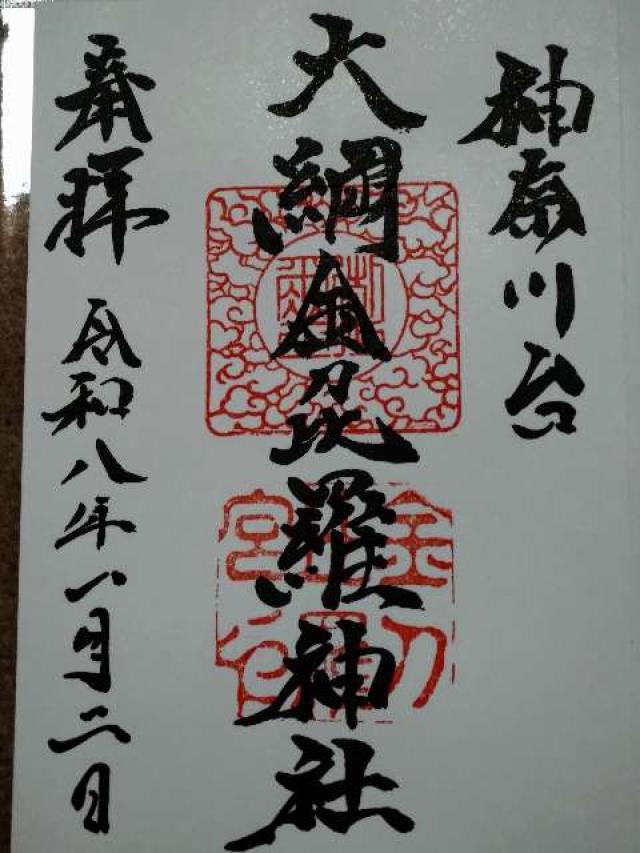 神奈川台
大綱金刀比羅神社
奉拝
令和八年一月二日